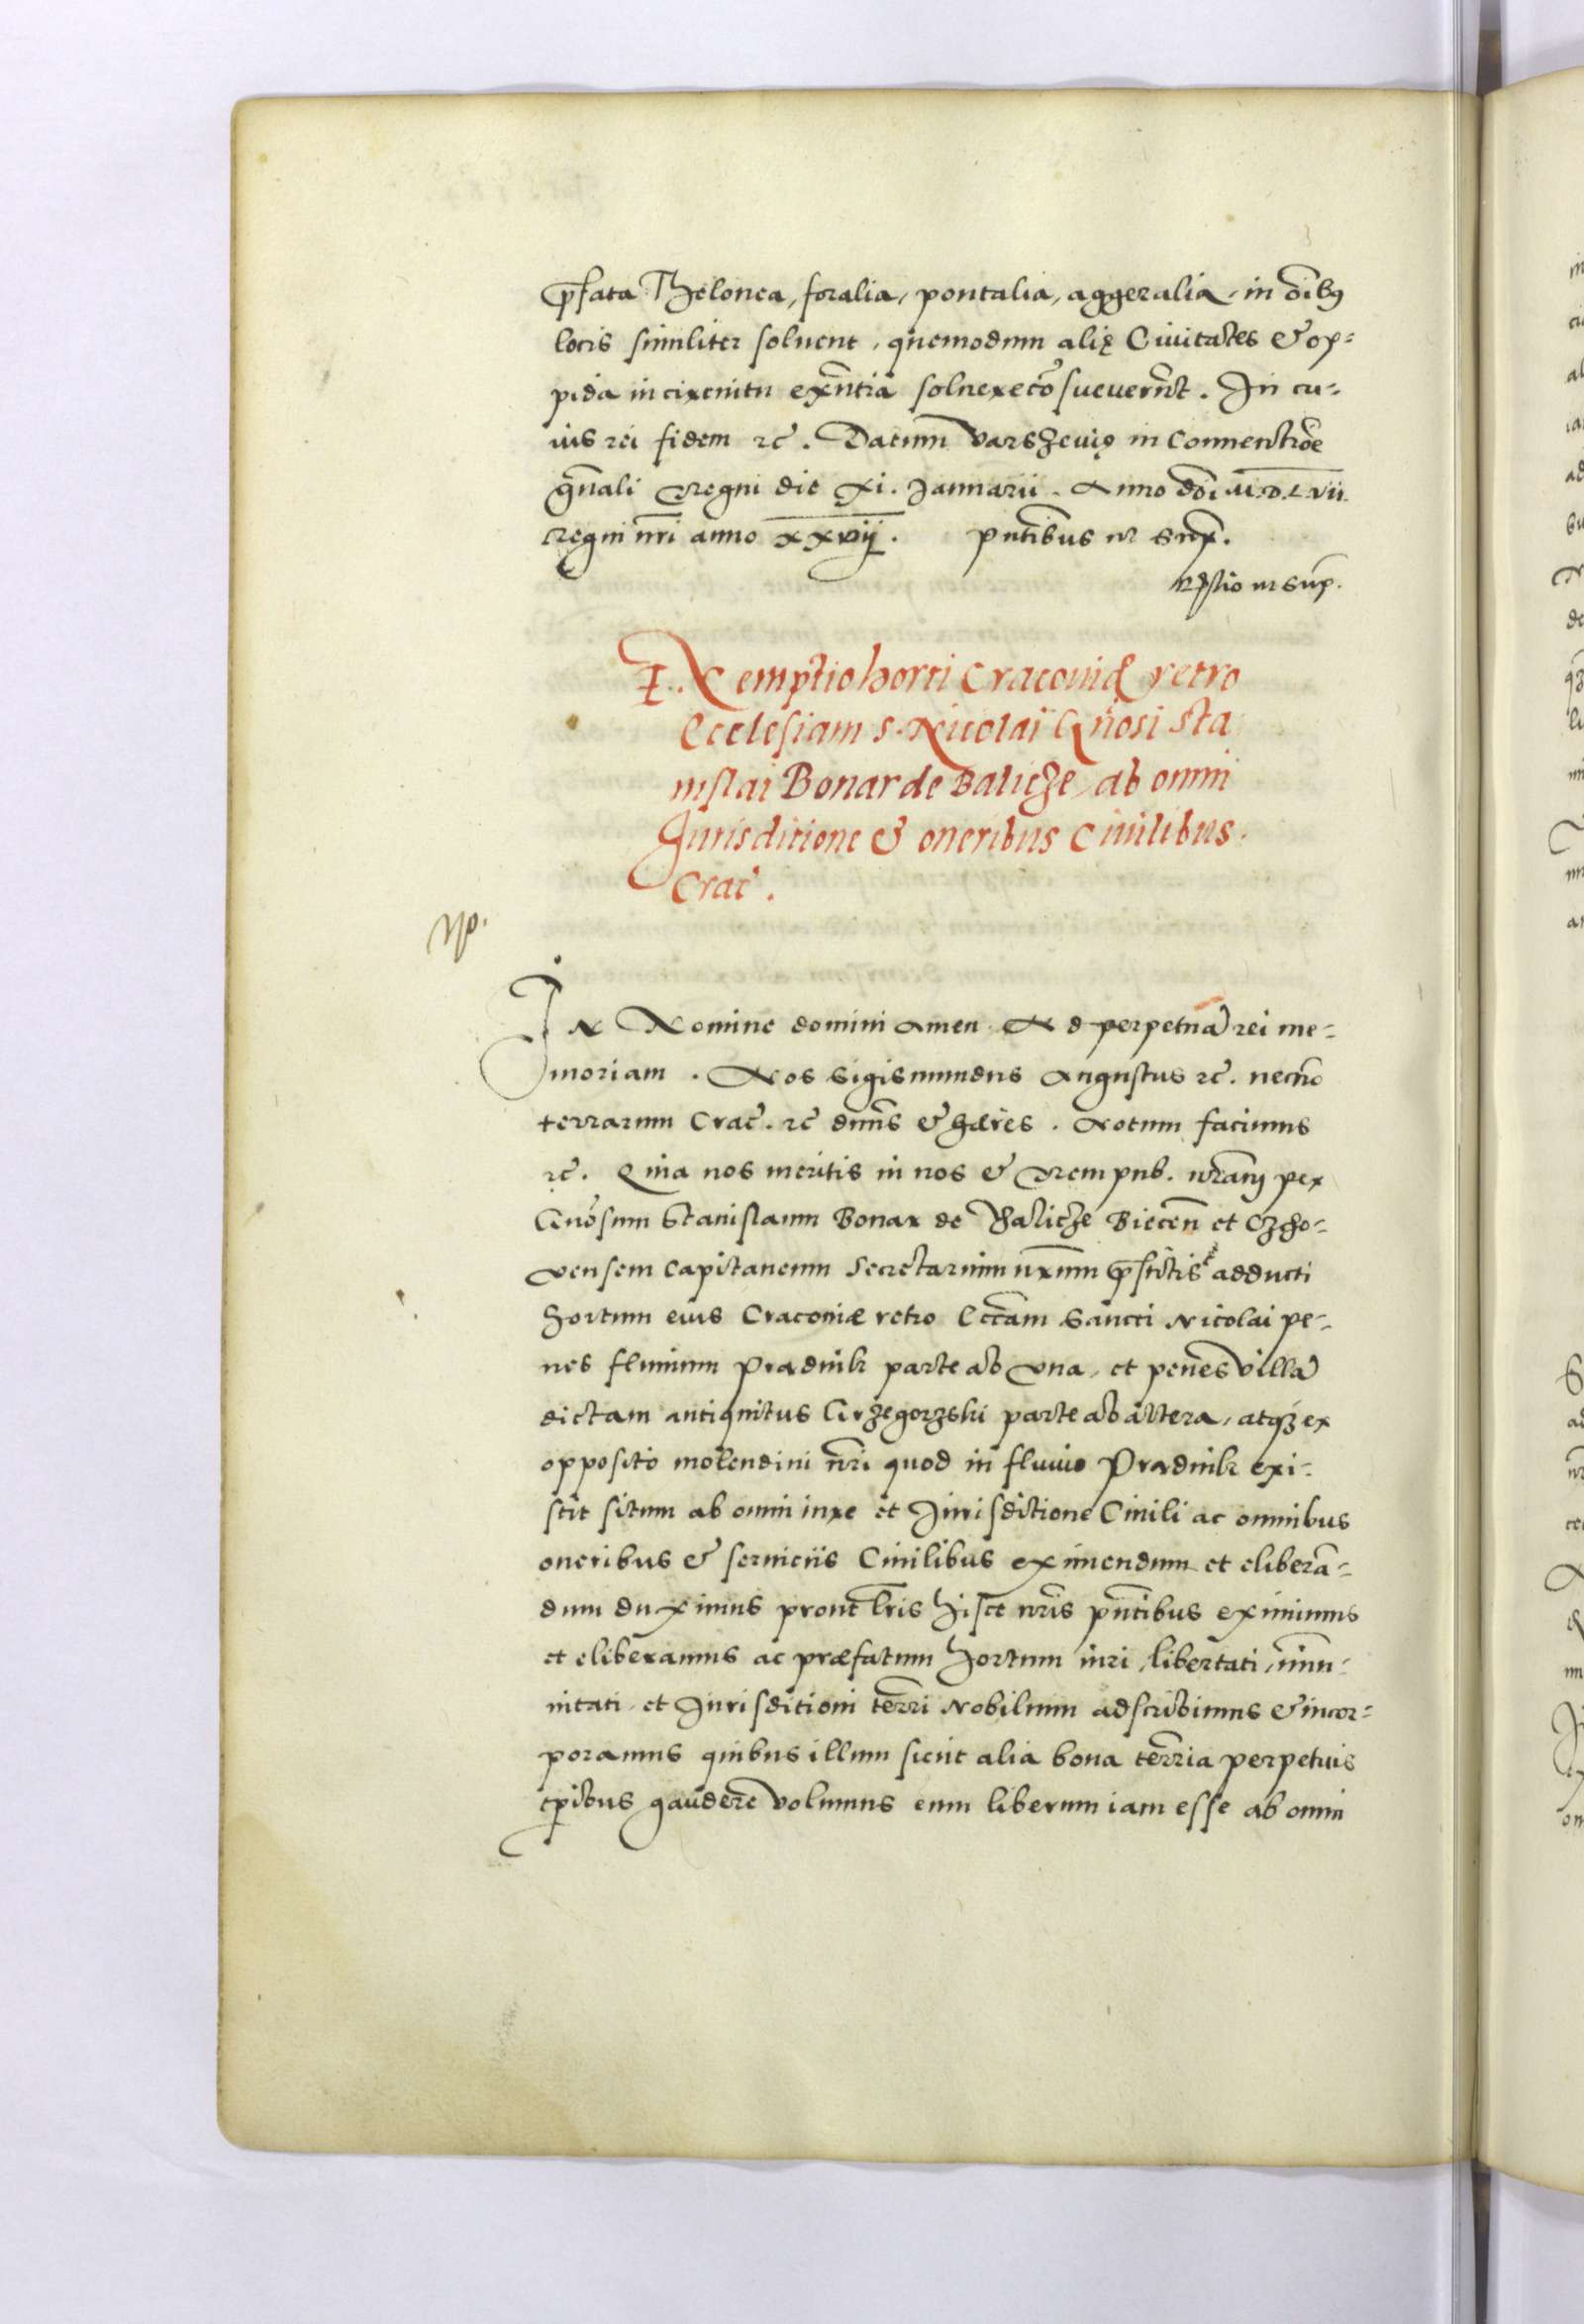 p̄fata Thelonea, foralia, pontalia, aggeralia, in oībꝫ
locis similiter soluent, quemodum alię Ciuitates & op-
pida in circuitu exn̄tia soluere cōsueuerūt. In cu-
ius rei fidem ꝛc̄. Datum varszeuię in Conuentiōe
gn̄ali Regni die xi. Januarii. Anno dōi M.D.L.vii.
regni nr̄i anno xxvij. pn̄tibus vt sup̄.
Rl̄tio vt sup̄.
EXemptio horti Cracouię retro
Ecclesiam s. Nicolai Gn̄osi Sta
nislai Bonar de Balicze ab omni
Jurisditione & oneribus Ciuilibus
Crac̄.
IN Nomine domini amen. Ad perpetuā rei me-
moriam. Nos Sigismundus Augustus ꝛc̄. necnō
terrarum Crac̄. ꝛc̄ dnn̄s & hæres. Notum facimus
ꝛc̄. Quia nos meritis in nos & Rempub. nr̄am per
Gn̄osum Stanislaum Bonar de Balicze Biecen̄ et Czcho-
uensem Capitaneum Secretarium nr̄um p̄stitis adducti
hortum eius Cracouiæ retro Eccl̄am Sancti Nicolai pe-
nes fluuium Pradnik parte ab vna, et penes villā
dictam antiquitus Grzegorzski parte ab altera, atqꝫ ex
opposito molendini nr̄i quod in fluuio Pradnik exi-
stit situm ab omni iure et Jurisditione Ciuili ac omnibus
oneribus & seruiciis Ciuilibus eximendum et eliberā-
dum duximus prout lr̄is hisce nr̄is pn̄tibus eximimus
et eliberamus ac præfatum hortum iuri, libertati, īmu-
nitati et Jurisditioni terr̄ri Nobilium adscribimus & incor-
poramus quibus illum sicut alia bona terr̄ria perpetuis
tp̄ibus gaudere volumus eum liberum iam esse ab omni